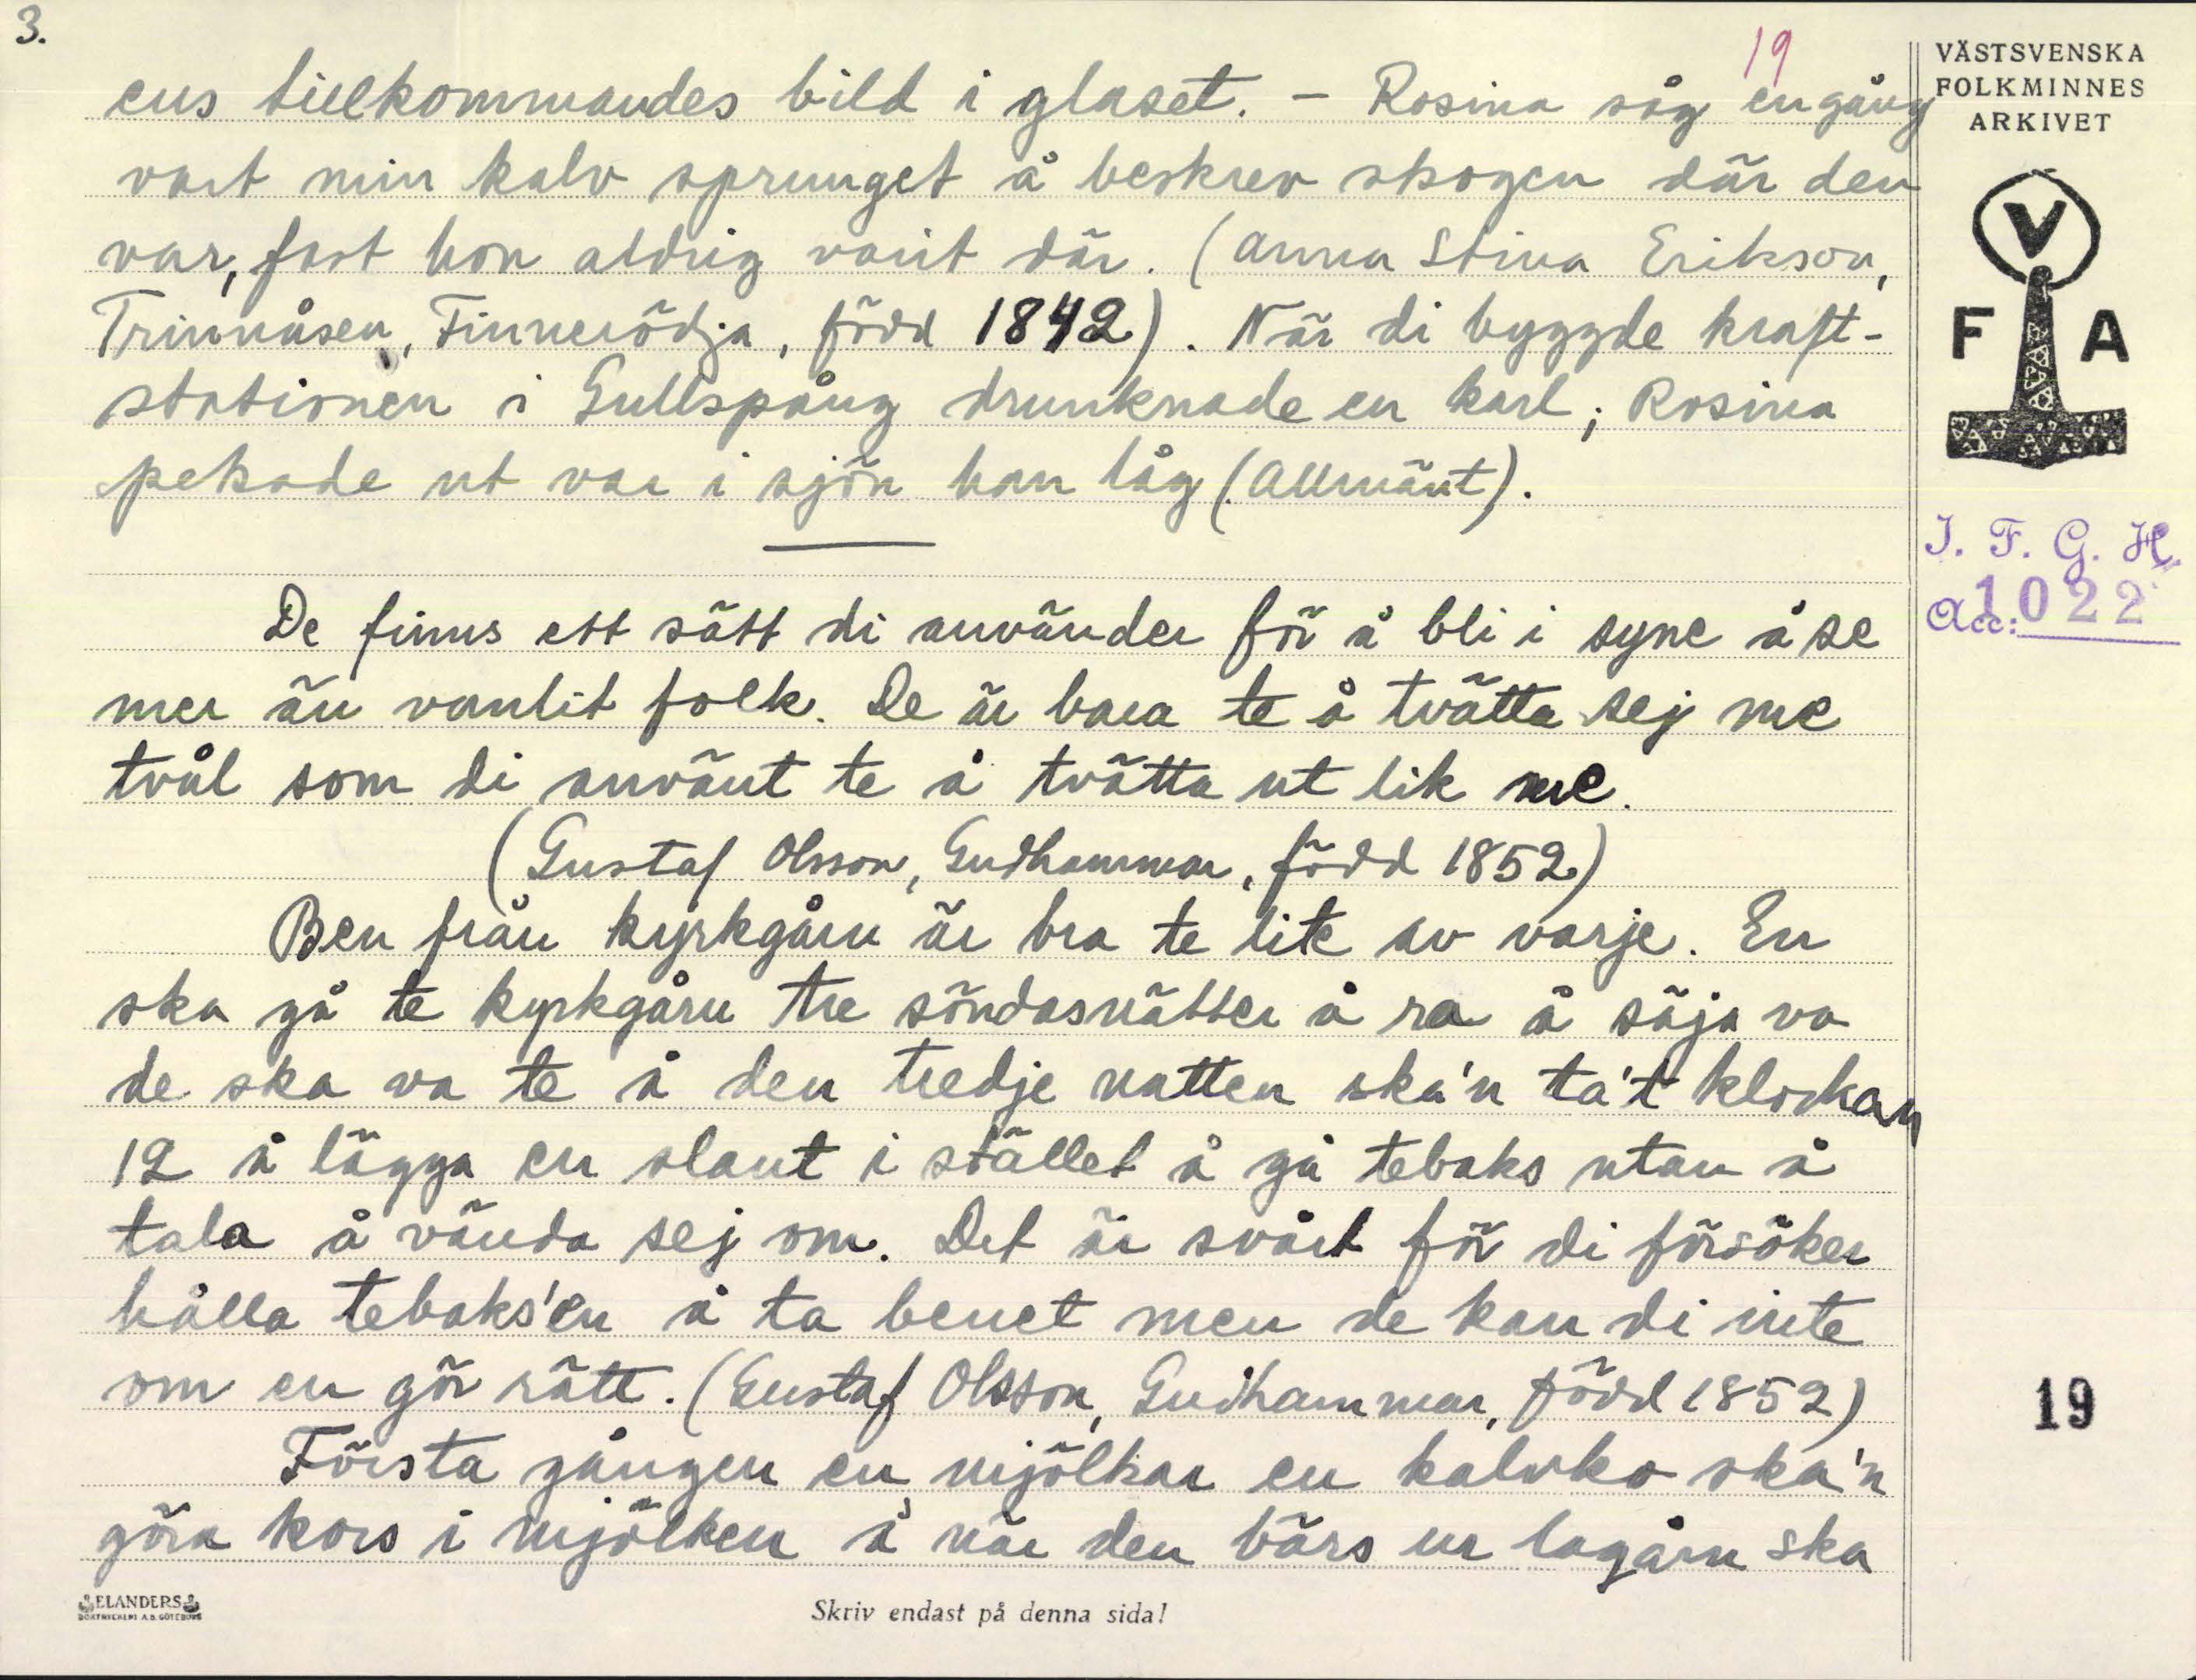 3.
19
ens tillkommandes bild i glaset. – Rosina såg en gång
vart min kalv sprunget å beskrev skogen där den
var, fast hon aldrig varit där. (Anna Stina Erikson,
Trinnåsen, Finnerödja, född 1842). När di byggde kraft-
stationen i Gullspång drunknade en karl; Rosina
pekade ut var i sjön han låg (Allmänt).
De finns ett sätt di använder för å bli i syne å se
mer än vanlit folk. De är bara te å tvätta sej me
tvål som di använt te å tvätta ut lik me.
(Gustaf Olsson, Gudhammar, född 1852)
Ben från kyrkgårn är bra te lite av varje. En
ska gå te kyrkgårn tre söndasnätter å ra å säja va
de ska va te å den tredje natten ska'n ta't klockan
12 å lägga en slant i stället å gå tebaks utan å
tala å vända sej om. Det är svårt för di försöker
hålla tebaks'en å ta benet men de kan di inte
om en gör rätt. (Gustaf Olsson, Gudhammar, född 1852)
Första gången en mjölkar en kalvko ska'n
göra kors i mjölken å när den bärs ur lagårn ska
VÄSTSVENSKA
FOLKMINNES
ARKIVET
V
F A
I. F. G. H.
Acc: 1022
19
ELANDERS
BOKTRYCKERI A.B. GÖTEBORG
Skriv endast på denna sida!